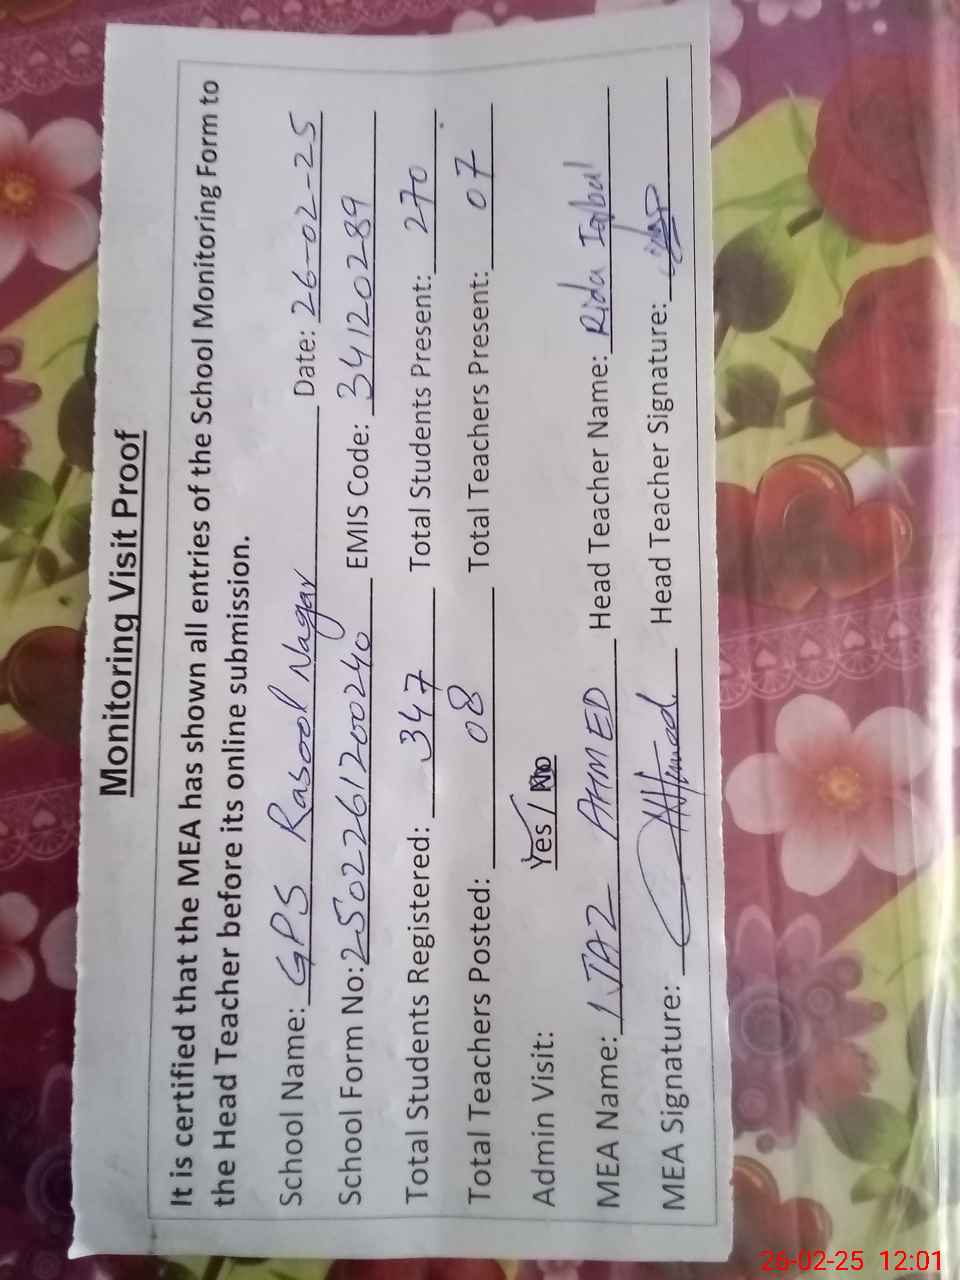 Monitoring Visit Proof
It is certified that the MEA has shown all entries of the School Monitoring Form to
the Head Teacher before its online submission.
School Name: GPS Rasool Nagar Date: 26-02-25
School Form No: 2502261200240 EMIS Code: 34120289
Total Students Registered: 347 Total Students Present: 270
Total Teachers Posted: 08 Total Teachers Present: 07
Admin Visit: Yes / No
MEA Name: IJAZ AHMED Head Teacher Name: Rida Iqbal
MEA Signature: Head Teacher Signature:
26-02-25 12:01